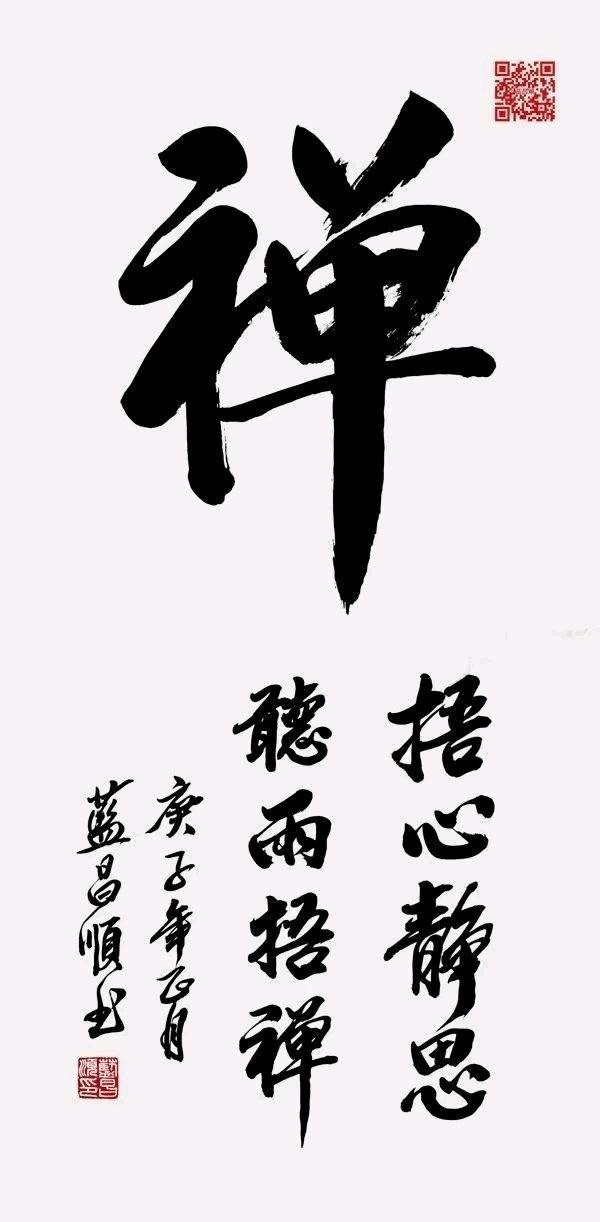 禅
捂心靜思
聽雨捂禅
庚子年正月
藍昌順书